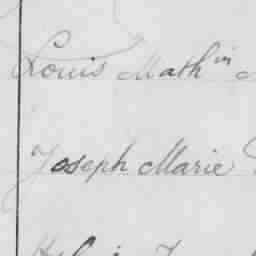 Louis Math^in
Joseph Marie